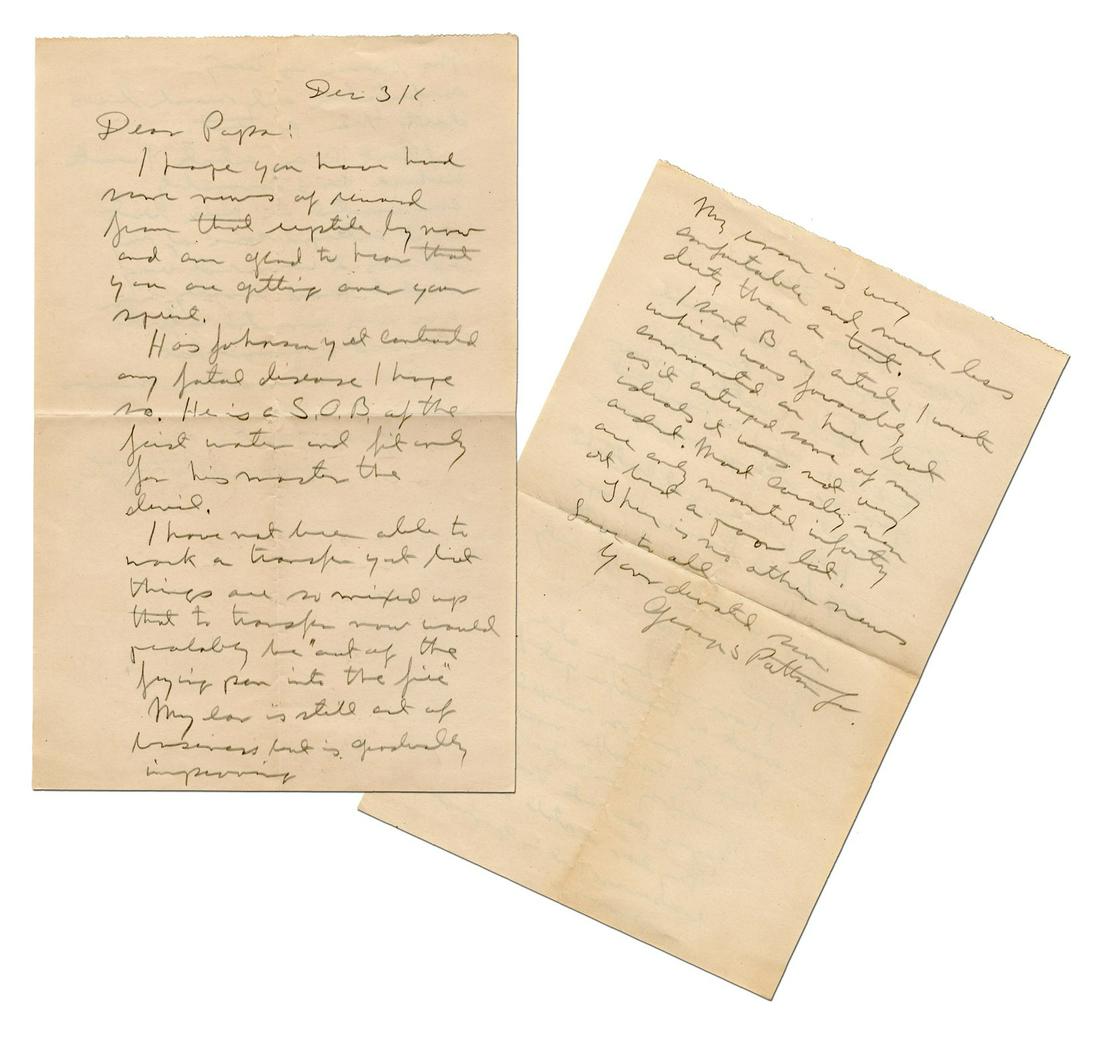 Dec 31
Dear Papa:
I hope you have had
some news of reward
from that reptile by now
and am glad to hear that
you are getting over your
sprint.
Has Johnson yet contracted
any fatal disease I hope
so. He is a S.O.B. of the
first water and fit only
for his master the
devil.
I have not been able to
work a transfer yet but
things are so mixed up
that to transfer now would
probably be "out of the
frying pan into the fire"
My ear is still out of
business but is gradually
improving
My room is very
comfortable and much less
dirty than a tent.
I sent B an article I wrote
which was favorably
commented on here but
as it outraged some of my
ideals it was not very
ardent. Most cavalry men
are only mounted infantry
at best a poor lot.
There is no other news
Love to all
Your devoted son.
George S Patton Jr.